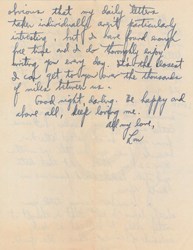 obvious that my daily letters
taken individually aren't particularly
interesting, but I have found enough
free time and I do thoroughly enjoy
writing you every day. It's the nearest
I can get to you over the thousands
of miles between us.
Good night, darling. Be happy and
above all, keep loving me.
All my love,
Lou